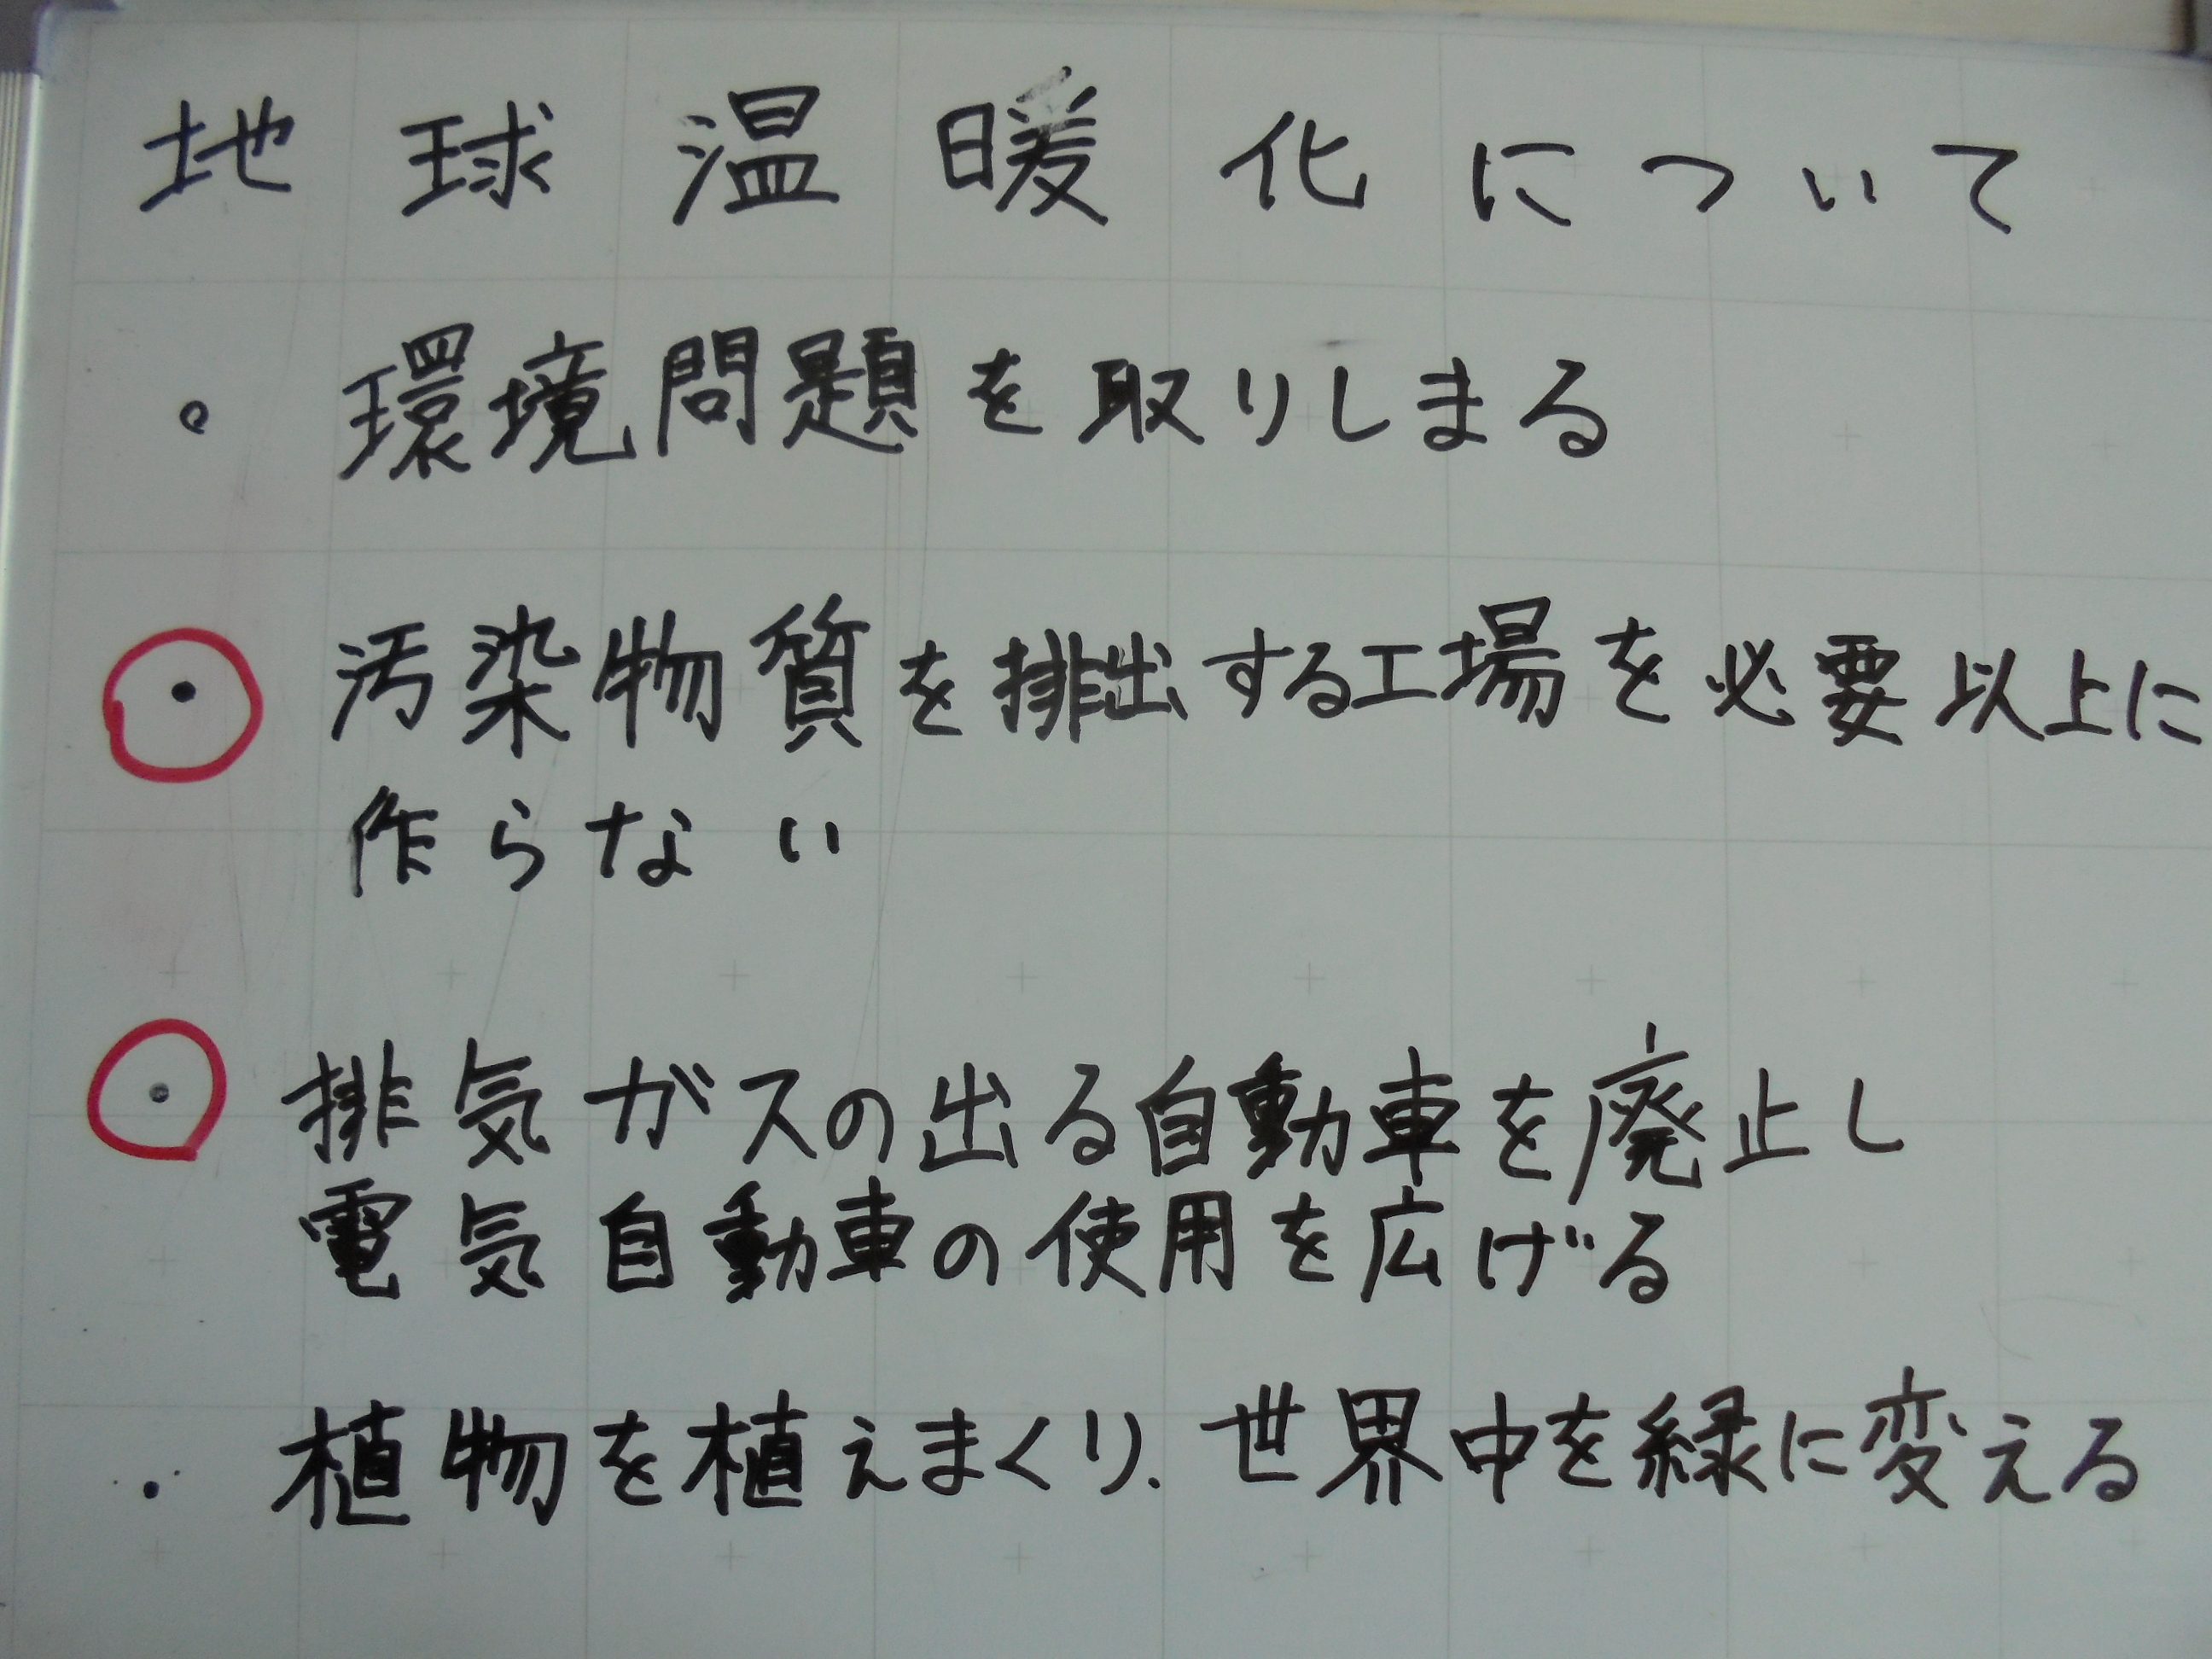 地球温暖化について
。環境問題を取りしまる
・汚染物質を排出する工場を必要以上に
作らない
・排気ガスの出る自動車を廃止し
電気自動車の使用を広げる
・植物を植えまくり、世界中を緑に変える